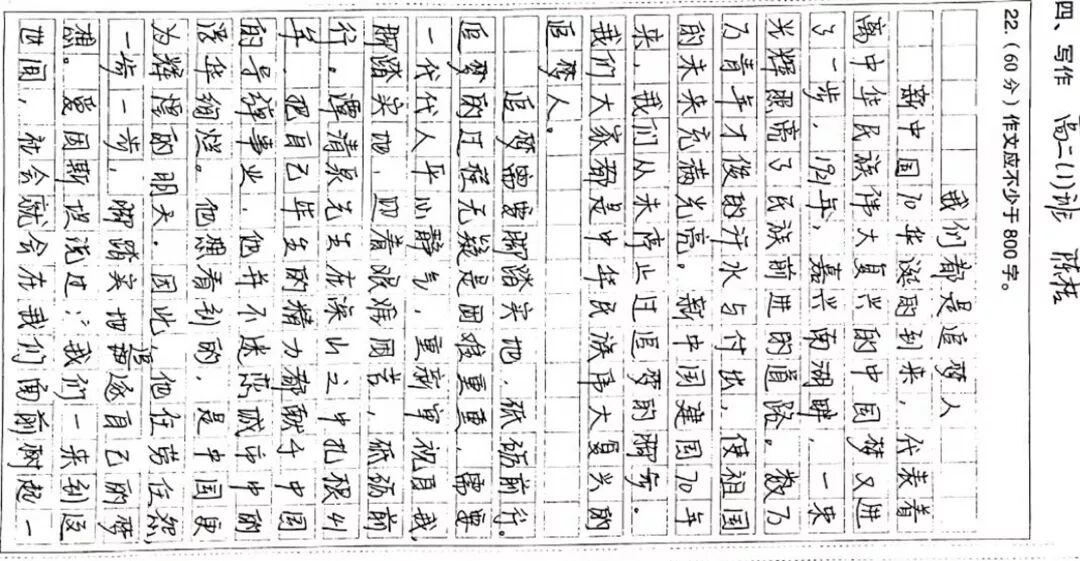 四、写作 高二(1)班
22.(60分)作文应不少于800字。
我们都是追梦人
新中国70华诞的到来，代表着
离中华民族伟大复兴的中国梦又进
了一步，1921年，嘉兴南湖畔，一束
光辉照亮了民族前进的道路。数乃
乃青年才俊的汗水与付出，使祖国
的未来充满光亮。新中国建国70年
来，我们从未停止过追梦的脚步。
我们大家都是中华民族伟大复兴的
追梦人。
追梦需要脚踏实地，砥砺前行。
追梦的过程无疑是困难重重，需要
一代代人平心静气，重新审视自我，
脚踏实地，迎着艰难困苦，砥砺前
行。谭清泉先生在深山之中扎根41
年，把自己毕生的精力都献予中国
的导弹事业，他并不迷恋城市中的
浮华绚烂。他照看到的，是中国更
为辉煌的明天。因此，他任劳任怨
一步一步，脚踏实地追逐自己的梦
想。曼因斯误说过："我们一来到这
世间，社会就会在我们面前树起一